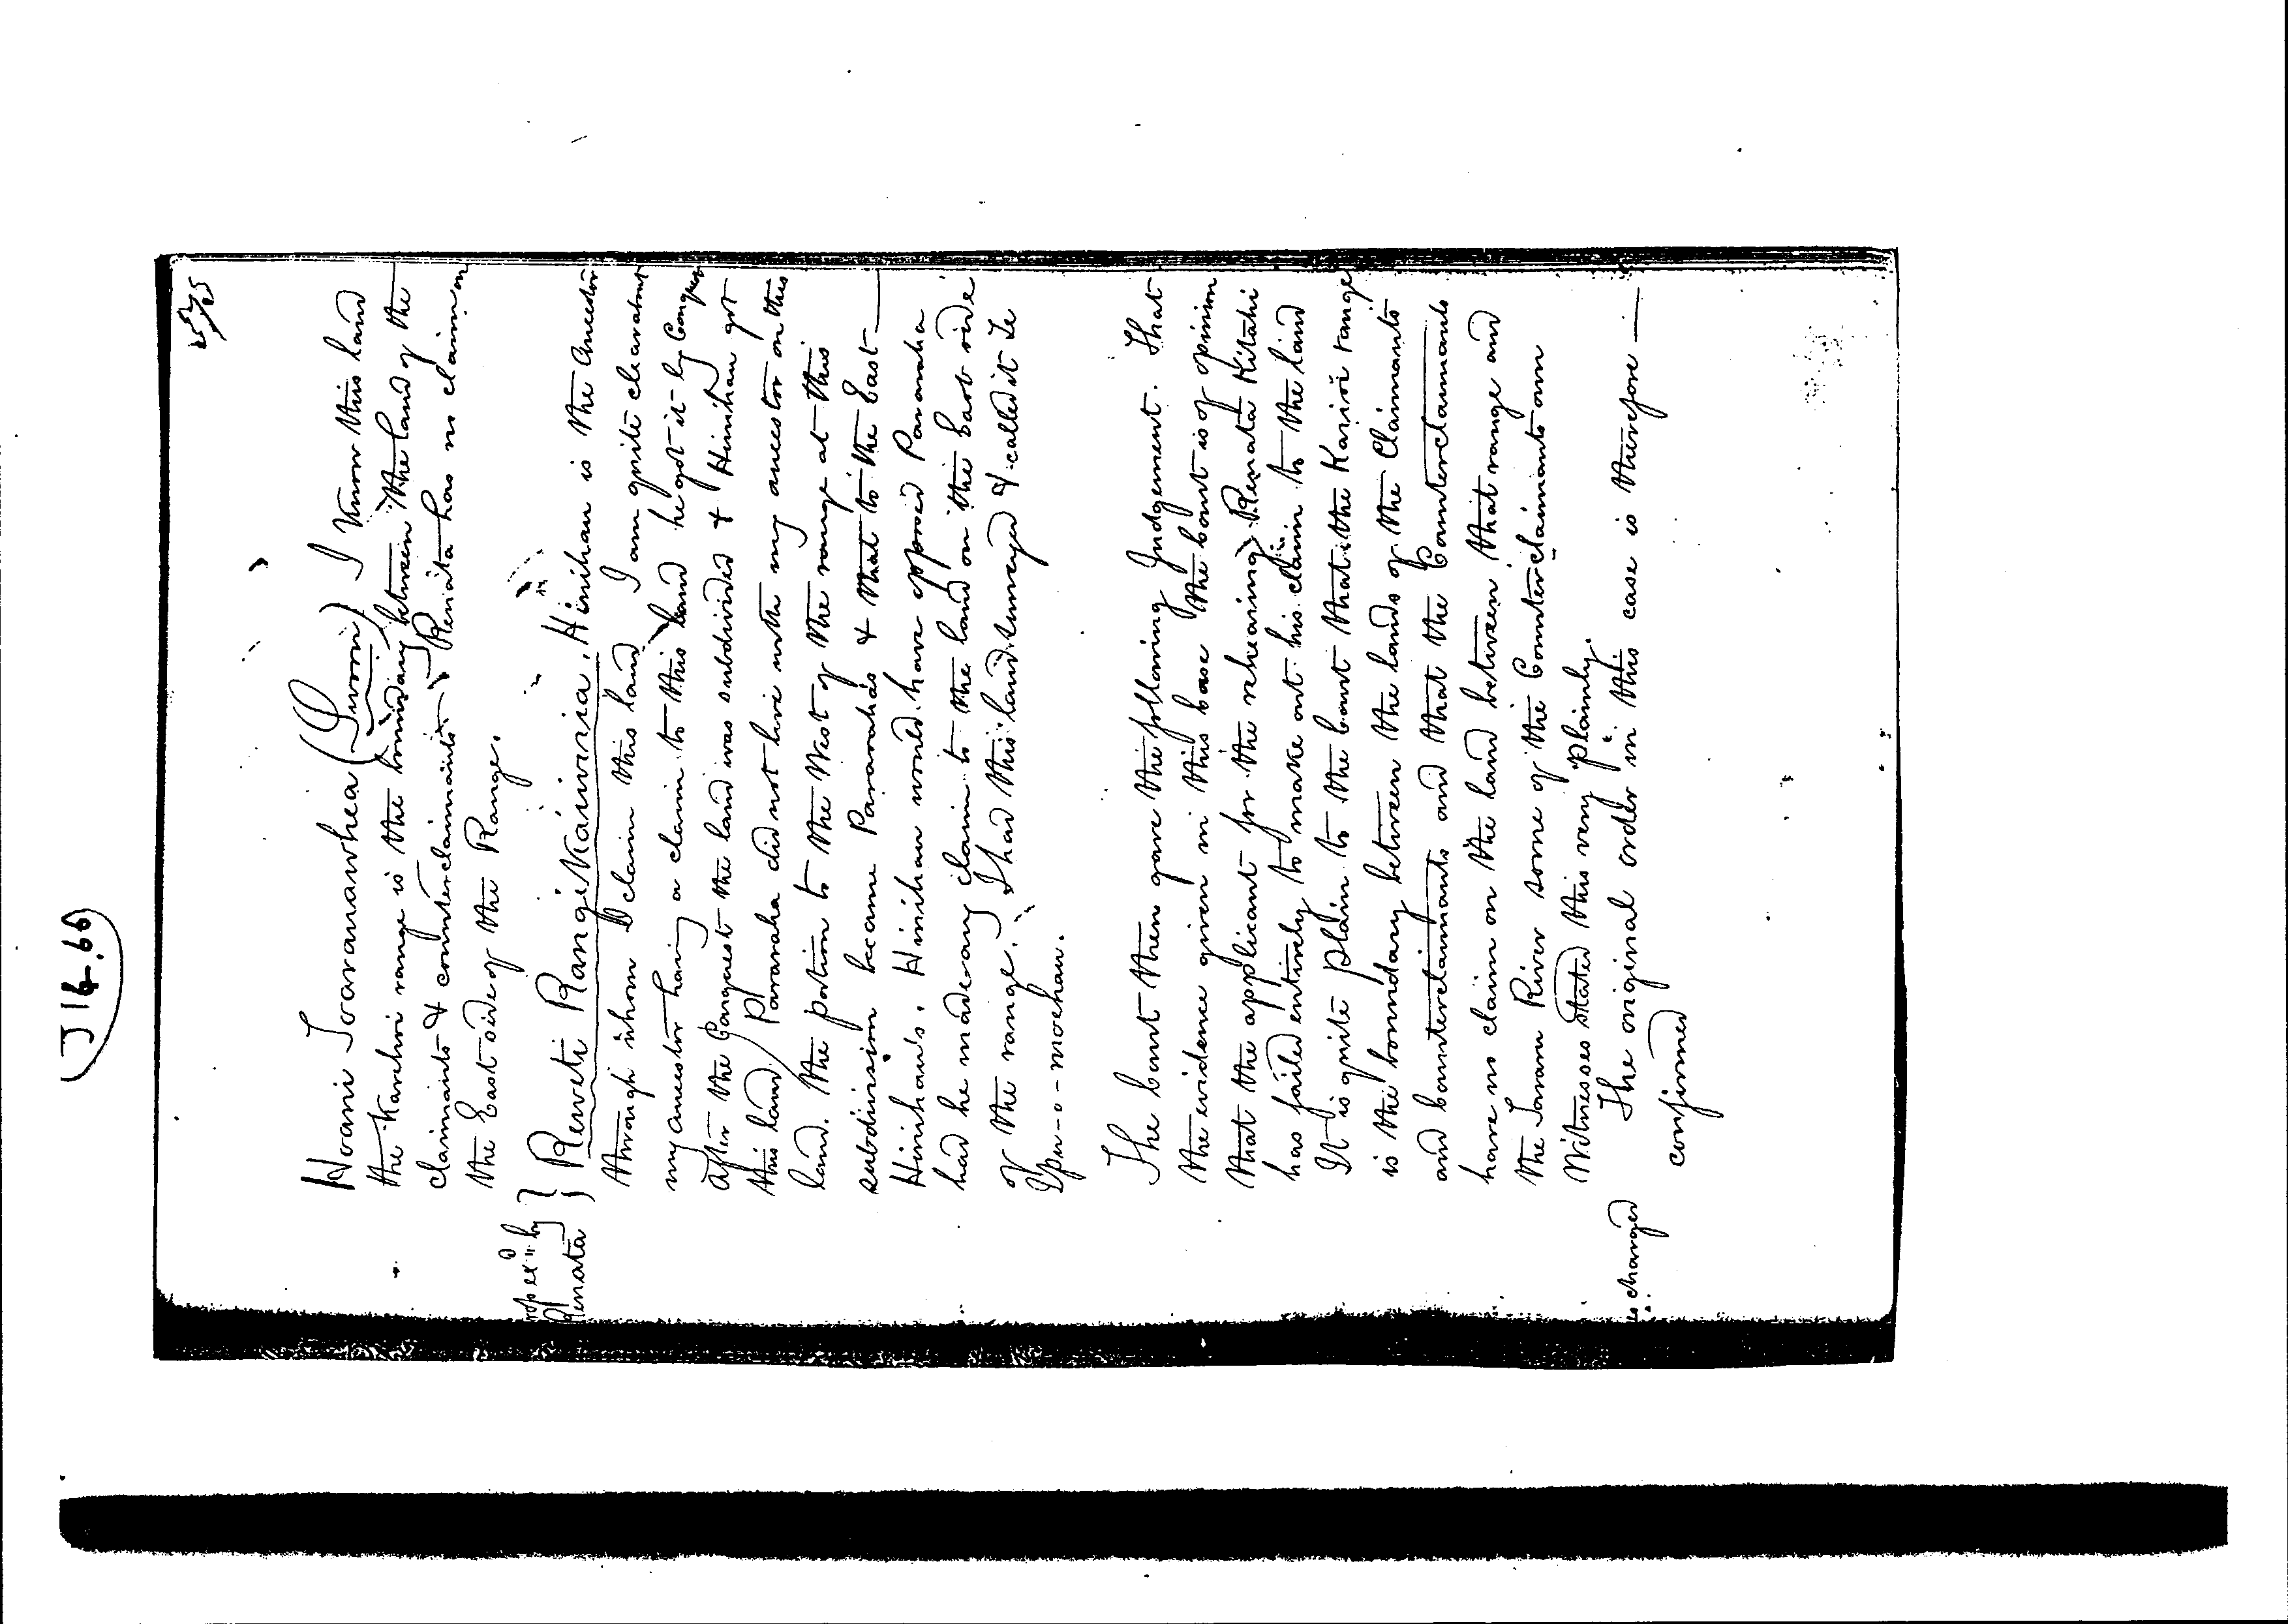 J 14.60
Hoani Toranawhea (Sworn) I know this land
the Karihri range is the boundary between the land of the
claimants & counterclaimants Renata has no claim on
the East side of the Range.
ex^d by
Renata
Reweti Rangikaiwiria. Hinihau is the ancestor
through whom I claim this land I am quite clear about
my ancestor having a claim to this land he got it by Conquest
after the Conquest the land was subdivided & Hinihau got
this land Paraaha did not live with my ancestor on this
land. The portion to the West of the range at this
subdivision became Paraaha's & that to the East
Hinihau's. Hinihau would have opposed Paraaha
had he made any claim to the land on the East side
of the range. I had this land surveyed & called it Te
Upu-o-moehau.
The Court then gave the following Judgement. That
the evidence given in this case the Court is of opinion
that the applicant for the rehearing Renata Kitahi
has failed entirely to make out his claim to the land
It is quite plain to the Court that the Karioi range
is the boundary between the lands of the Claimants
and Counterclaimants and that the Counterclaimants
have no claim on the land between that range and
the River some of the Counterclaimants own
Witnesses stated this very plainly.
The original order in this case is therefore
confirmed
charged